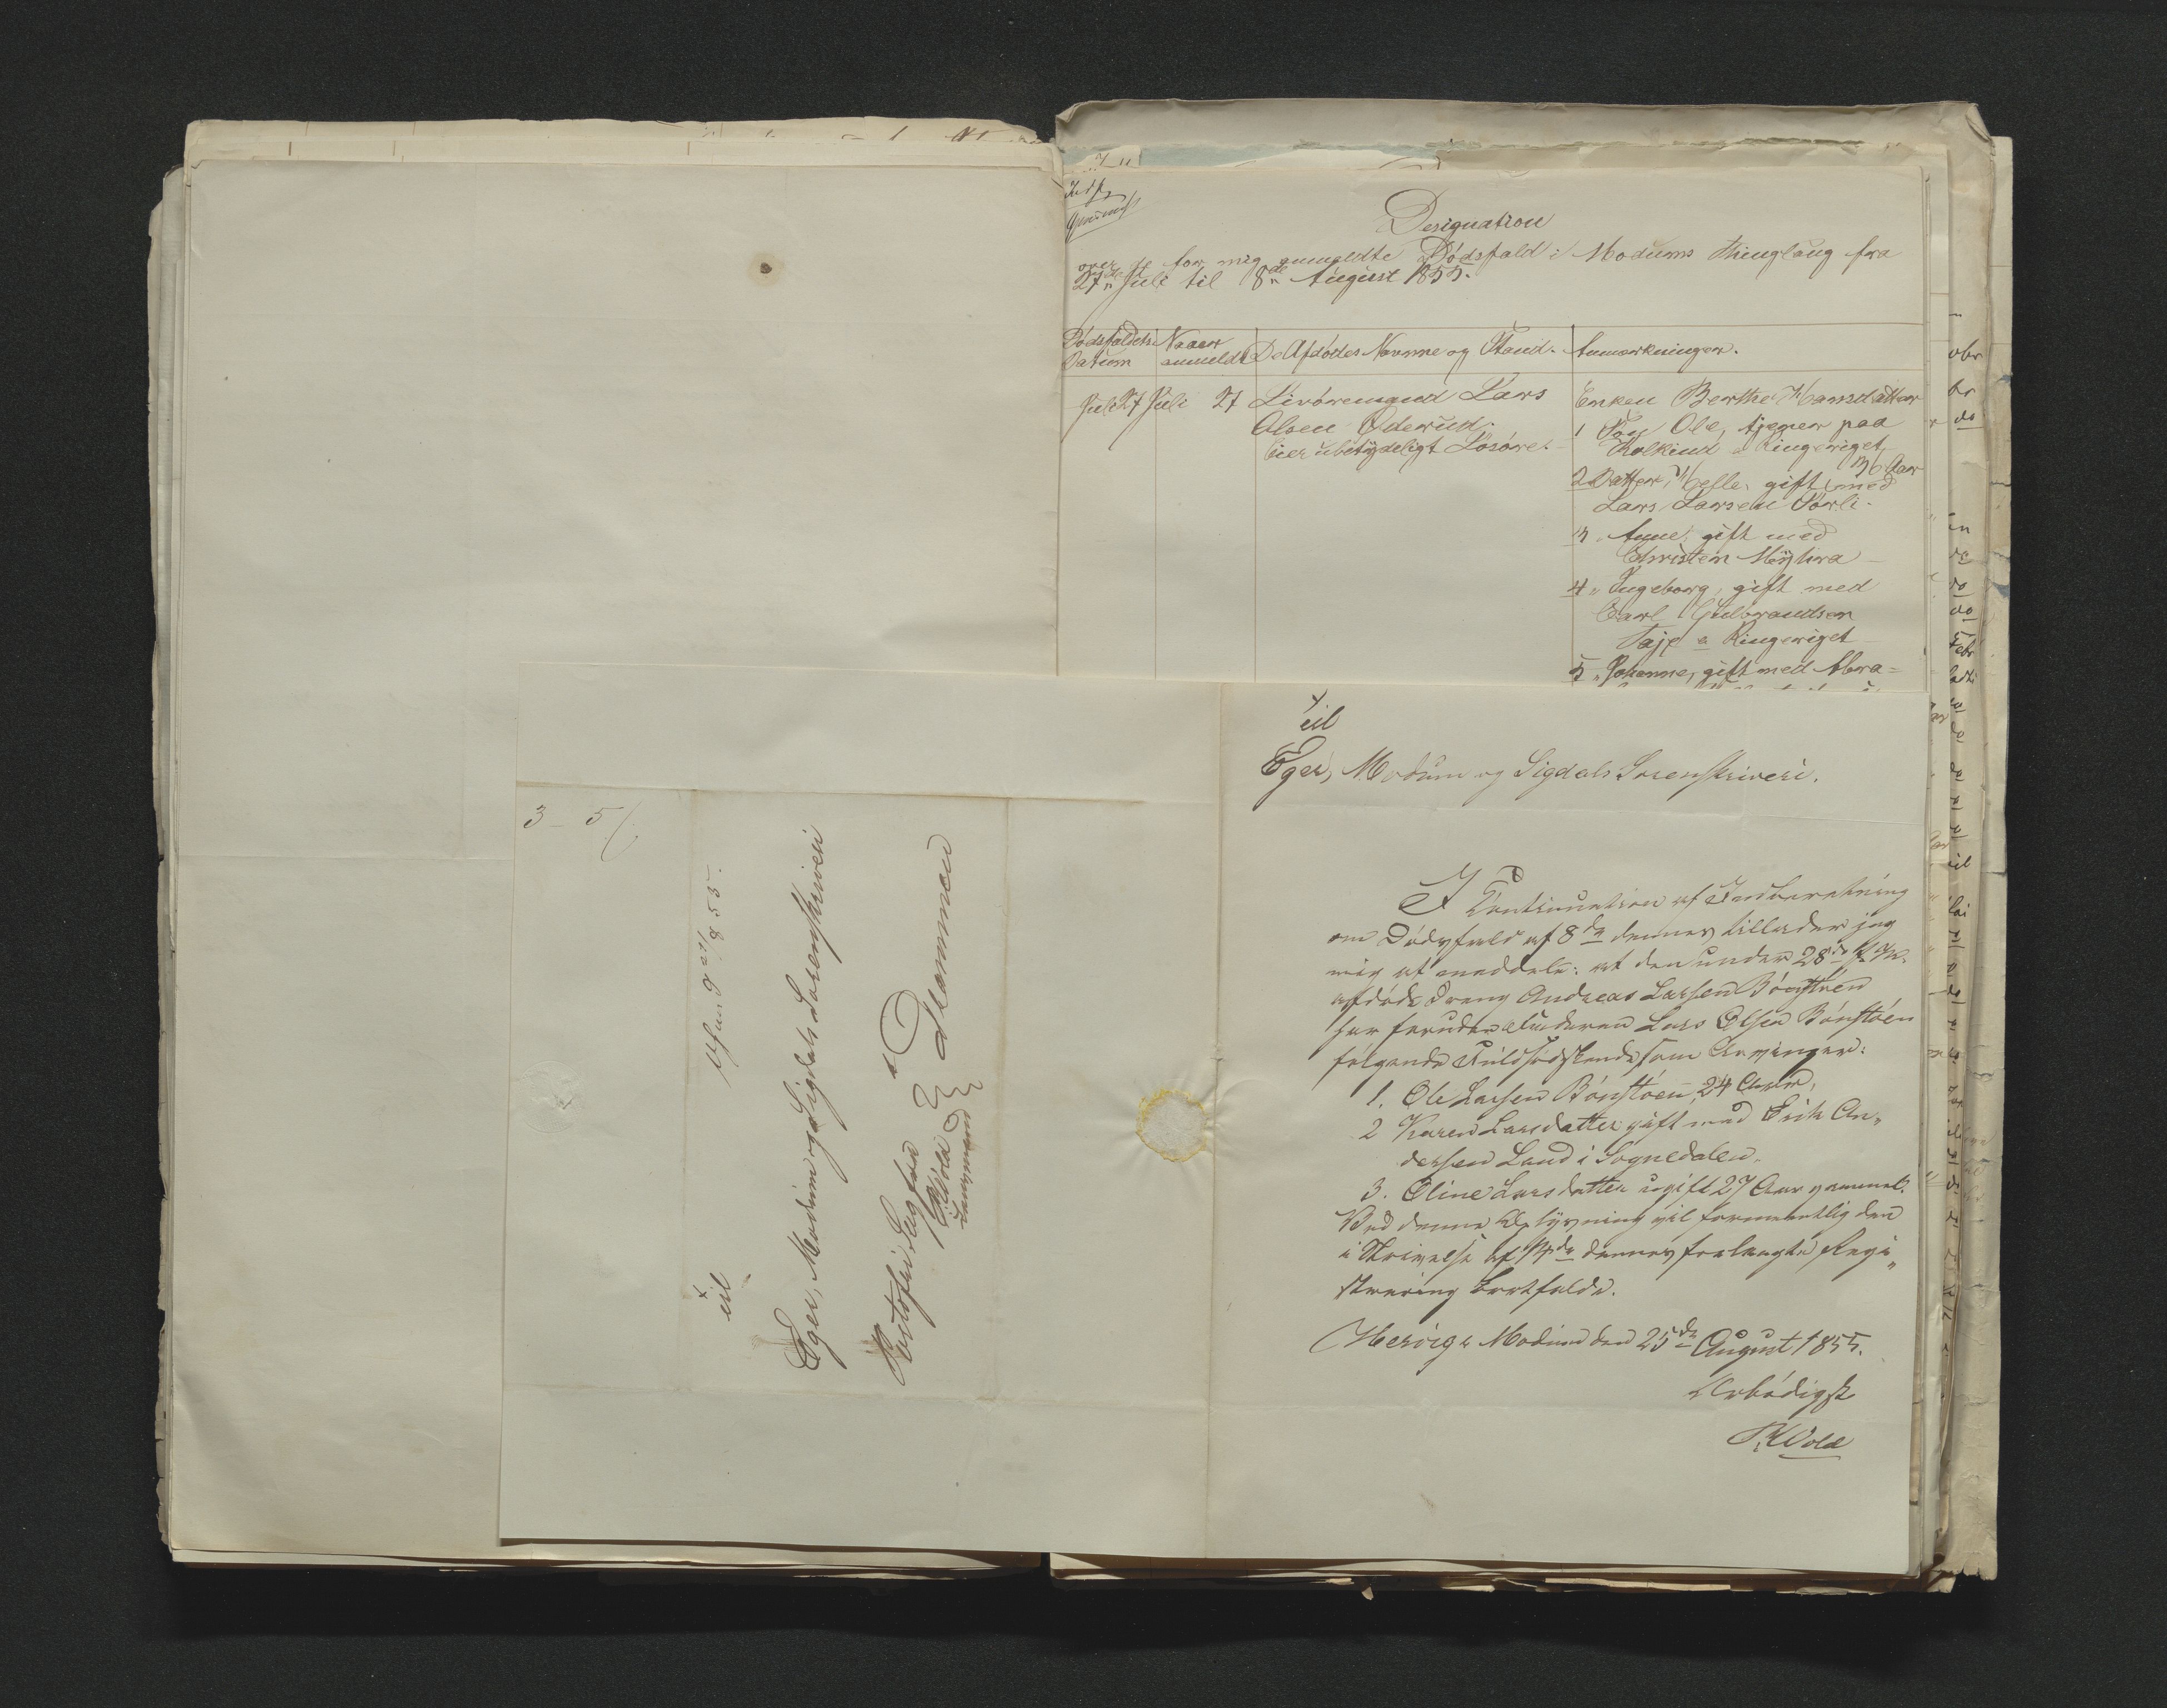 Designation
over de for mig anmeldte Dødsfald i Modums Thinglaug fra
27de Juli til 8de August 1855.
Dødsfaldets Datum
Naaer anmeldt
De Afdødes Navnne og Stand.
Anmærkninger.
Juli 27 Juli 27 Livøremand Lars
Olsen Øderud.
Eier ubetydeligt Løsøre.
Enken Berthe Hansdatter
1 Søn Ole, tjener paa
a Ringeriget,
36 Aar
2 Datter, Helle, gift med
Lars Larsen Sørli.
3 " Anne, gift med
Christen Myhra
4 " Ingeborg, gift med
Carl Gulbrandsen
Taje a Ringeriget
5 " Johanne, gift med Abra=
Til
Eger, Modum og Sigdals Sorenskriveri.
I Continuation af Indberetning
om Dødsfald af 8de dennes tillader jeg
mig at meddele: at den under 28de f. M.
afdøde Dreng Andreas Larsen Bønstøen
har foruden Faderen Lars Olsen Bønstøen
følgende Fuldsødskende som Arvinger:
1. Ole Larsen Bønstøen, 24 Aar,
2 Karen Larsdatter gift med Erik An„
dersen Land i Sognedalen.
3. Oline Larsdatter ugift 27 Aar gammel.
Ved denne Oplysning vil formeentlig den
i Skrivelse af dennes forlangte Regi„
strering bortfalde.
Modum den 25de August 1855.
Ærbødigst
Wold
3 - 5
855.
Til
Eger, Modum og Sigdals Sorenskriveri
a
Drammen
Portofri Sag fra
Wold
Lensmand